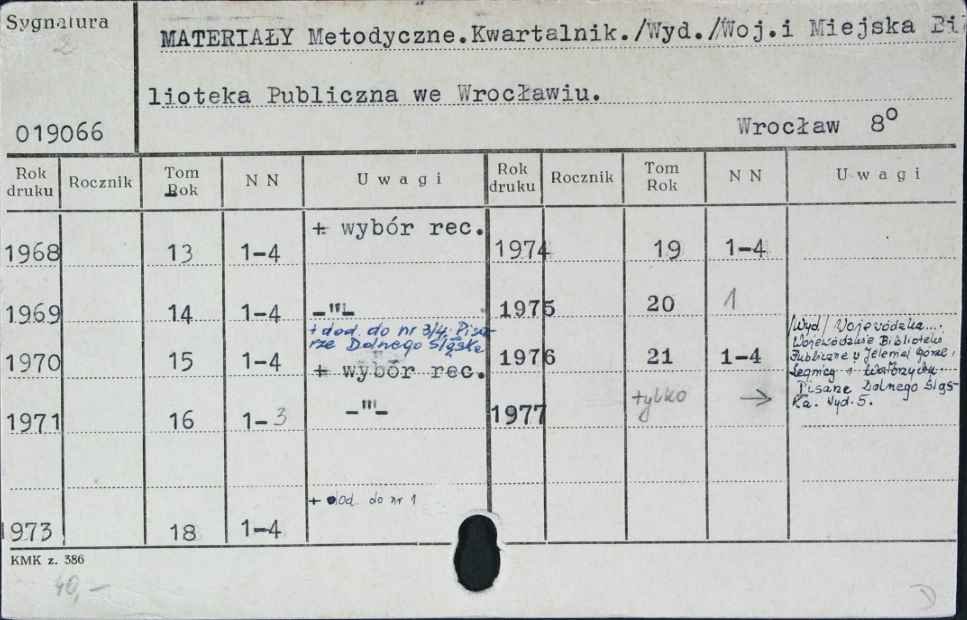 Sygnatura
MATERIAŁY Metodyczne.Kwartalnik./Wyd./Woj.i Miejska Bi
lioteka Publiczna we Wrocławiu.
019066
Wrocław 8⁰
Rok druku Rocznik Tom Rok N N Uwagi Rok druku Rocznik Tom Rok N N Uwagi
1968 13 1-4 + wybór rec. 1974 19 1-4
1969 14 1-4 -"- 1975 20 1
+ dod. do nr 3/4. Pisa-
rze Dolnego Śląska
1970 15 1-4 + wybór rec. 1976 21 1-4
/Wyd/ Wojewódzka...
Wojewódzkie Biblioteki
Publiczne w Jeleniej Górze,
Legnicy i Wałbrzychu.
Pisarze Dolnego Śląs-
ka. Wyd. 5.
1971 16 1-3 -"- 1977 tylko →
+ dod. do nr 1
1973 18 1-4
KMK z. 386
40,-